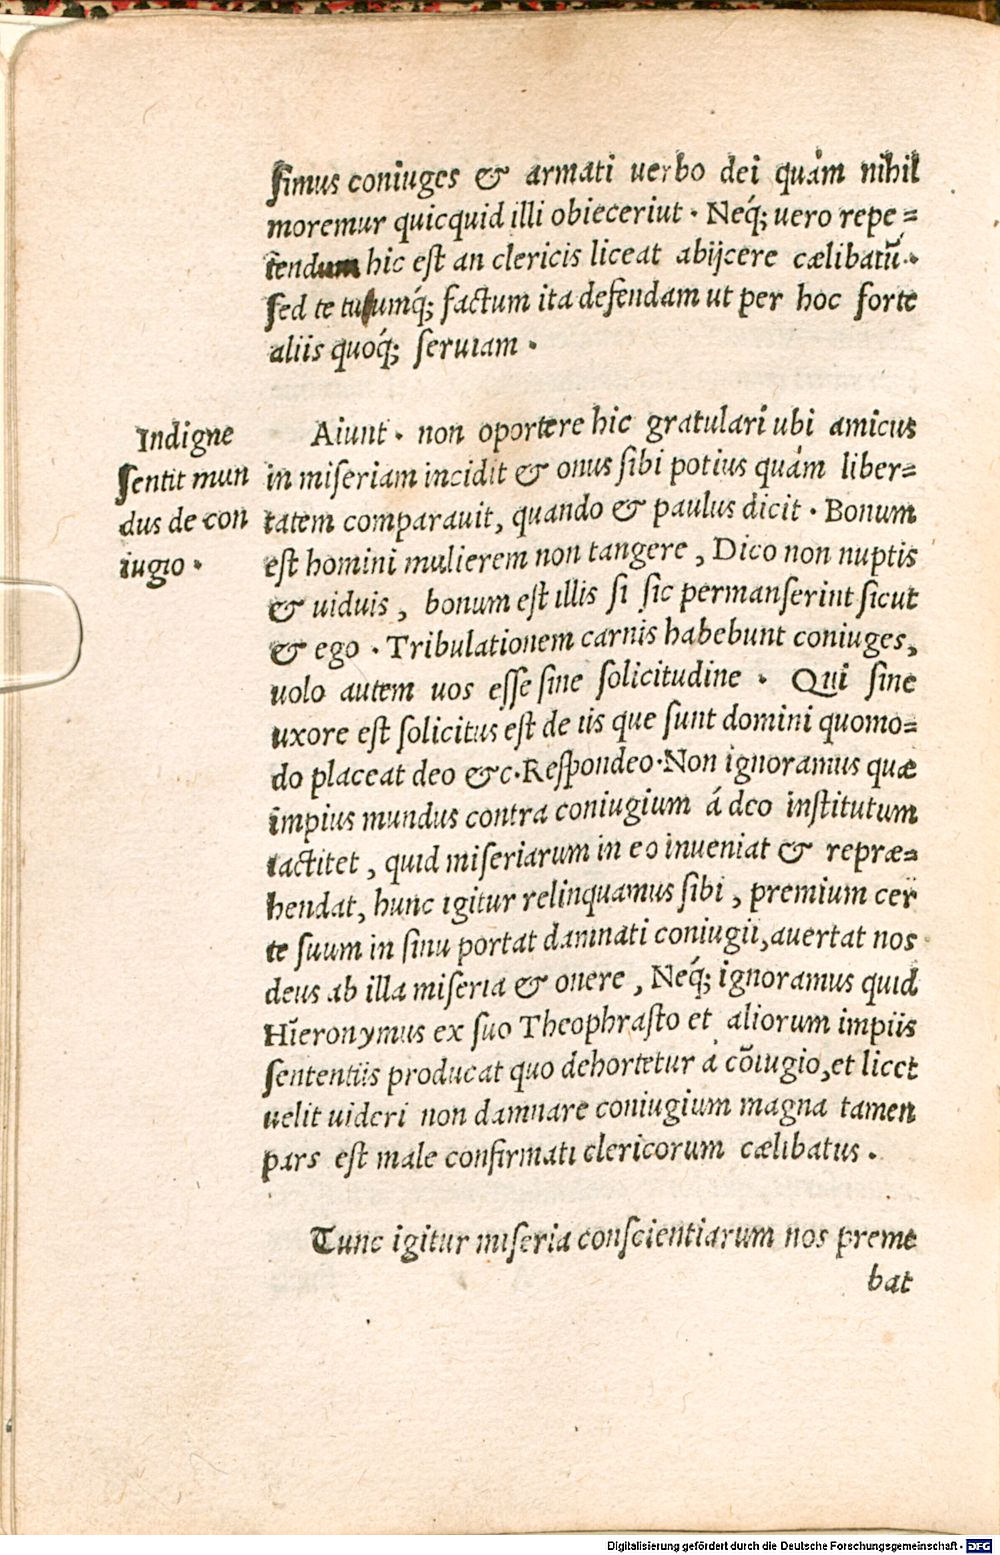 ſimus coniuges & armati uerbo dei quàm nihil
moremur quicquid illi obieceriut . Neq́; uero repe=
tendum hic eſt an clericis liceat abijcere cælibatū .
ſed te tuſumq́; factum ita defendam ut per hoc forte
aliis quoq́; ſeruiam .
Indigne
ſentit mun
dus de con
iugio .
Aiunt . non oportere hic gratulari ubi amicus
in miſeriam incidit & onus ſibi potius quám liber=
tatem comparauit, quando & paulus dicit . Bonum
eſt homini mulierem non tangere , Dico non nuptis
& uiduis , bonum eſt illis ſi ſic permanſerint ſicut
& ego . Tribulationem carnis habebunt coniuges,
uolo autem uos eſſe ſine ſolicitudine . Qui ſine
uxore eſt ſolicitus eſt de iis que ſunt domini quomo=
do placeat deo &c. Reſpondeo . Non ignoramus quæ
impius mundus contra coniugium á deo inſtitutum
iactitet , quid miſeriarum in eo inueniat & repræ=
hendat, hunc igitur relinquamus ſibi , premium cer
te ſuum in ſinu portat damnati coniugii, auertat nos
deus ab illa miſeria & onere , Neq́; ignoramus quid
Hieronymus ex ſuo Theophraſto et aliorum impiis
ſententiis producat quo dehortetur á cōiugio, et licet
uelit uideri non damnare coniugium magna tamen
pars eſt male confirmati clericorum cælibatus .
Tunc igitur miſeria conſcientiarum nos preme
bat
Digitalisierung gefördert durch die Deutsche Forschungsgemeinschaft - DFG